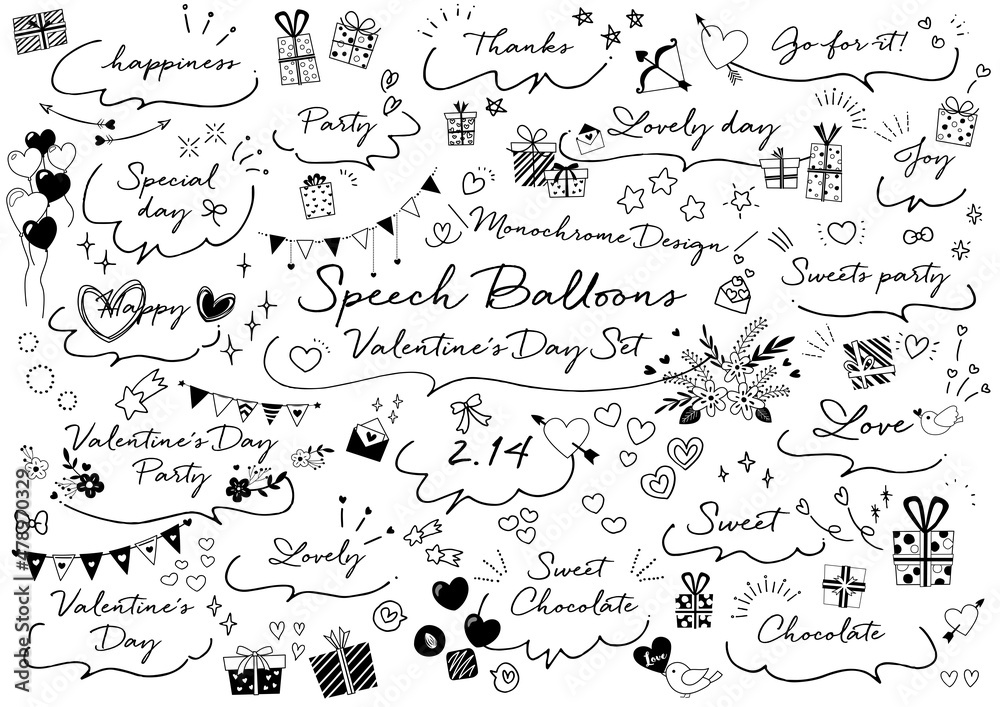 happiness
Thanks
Go for it!
Party
Lovely day
Joy
Special
day
Monochrome Design
Sweets party
Speech Balloons
Happy
Valentine's Day Set
Love
Valentine's Day
Party
2.14
Sweet
Lovely
Sweet
Chocolate
Valentine's
Day
Chocolate
Love
Adobe Stock | #478970329